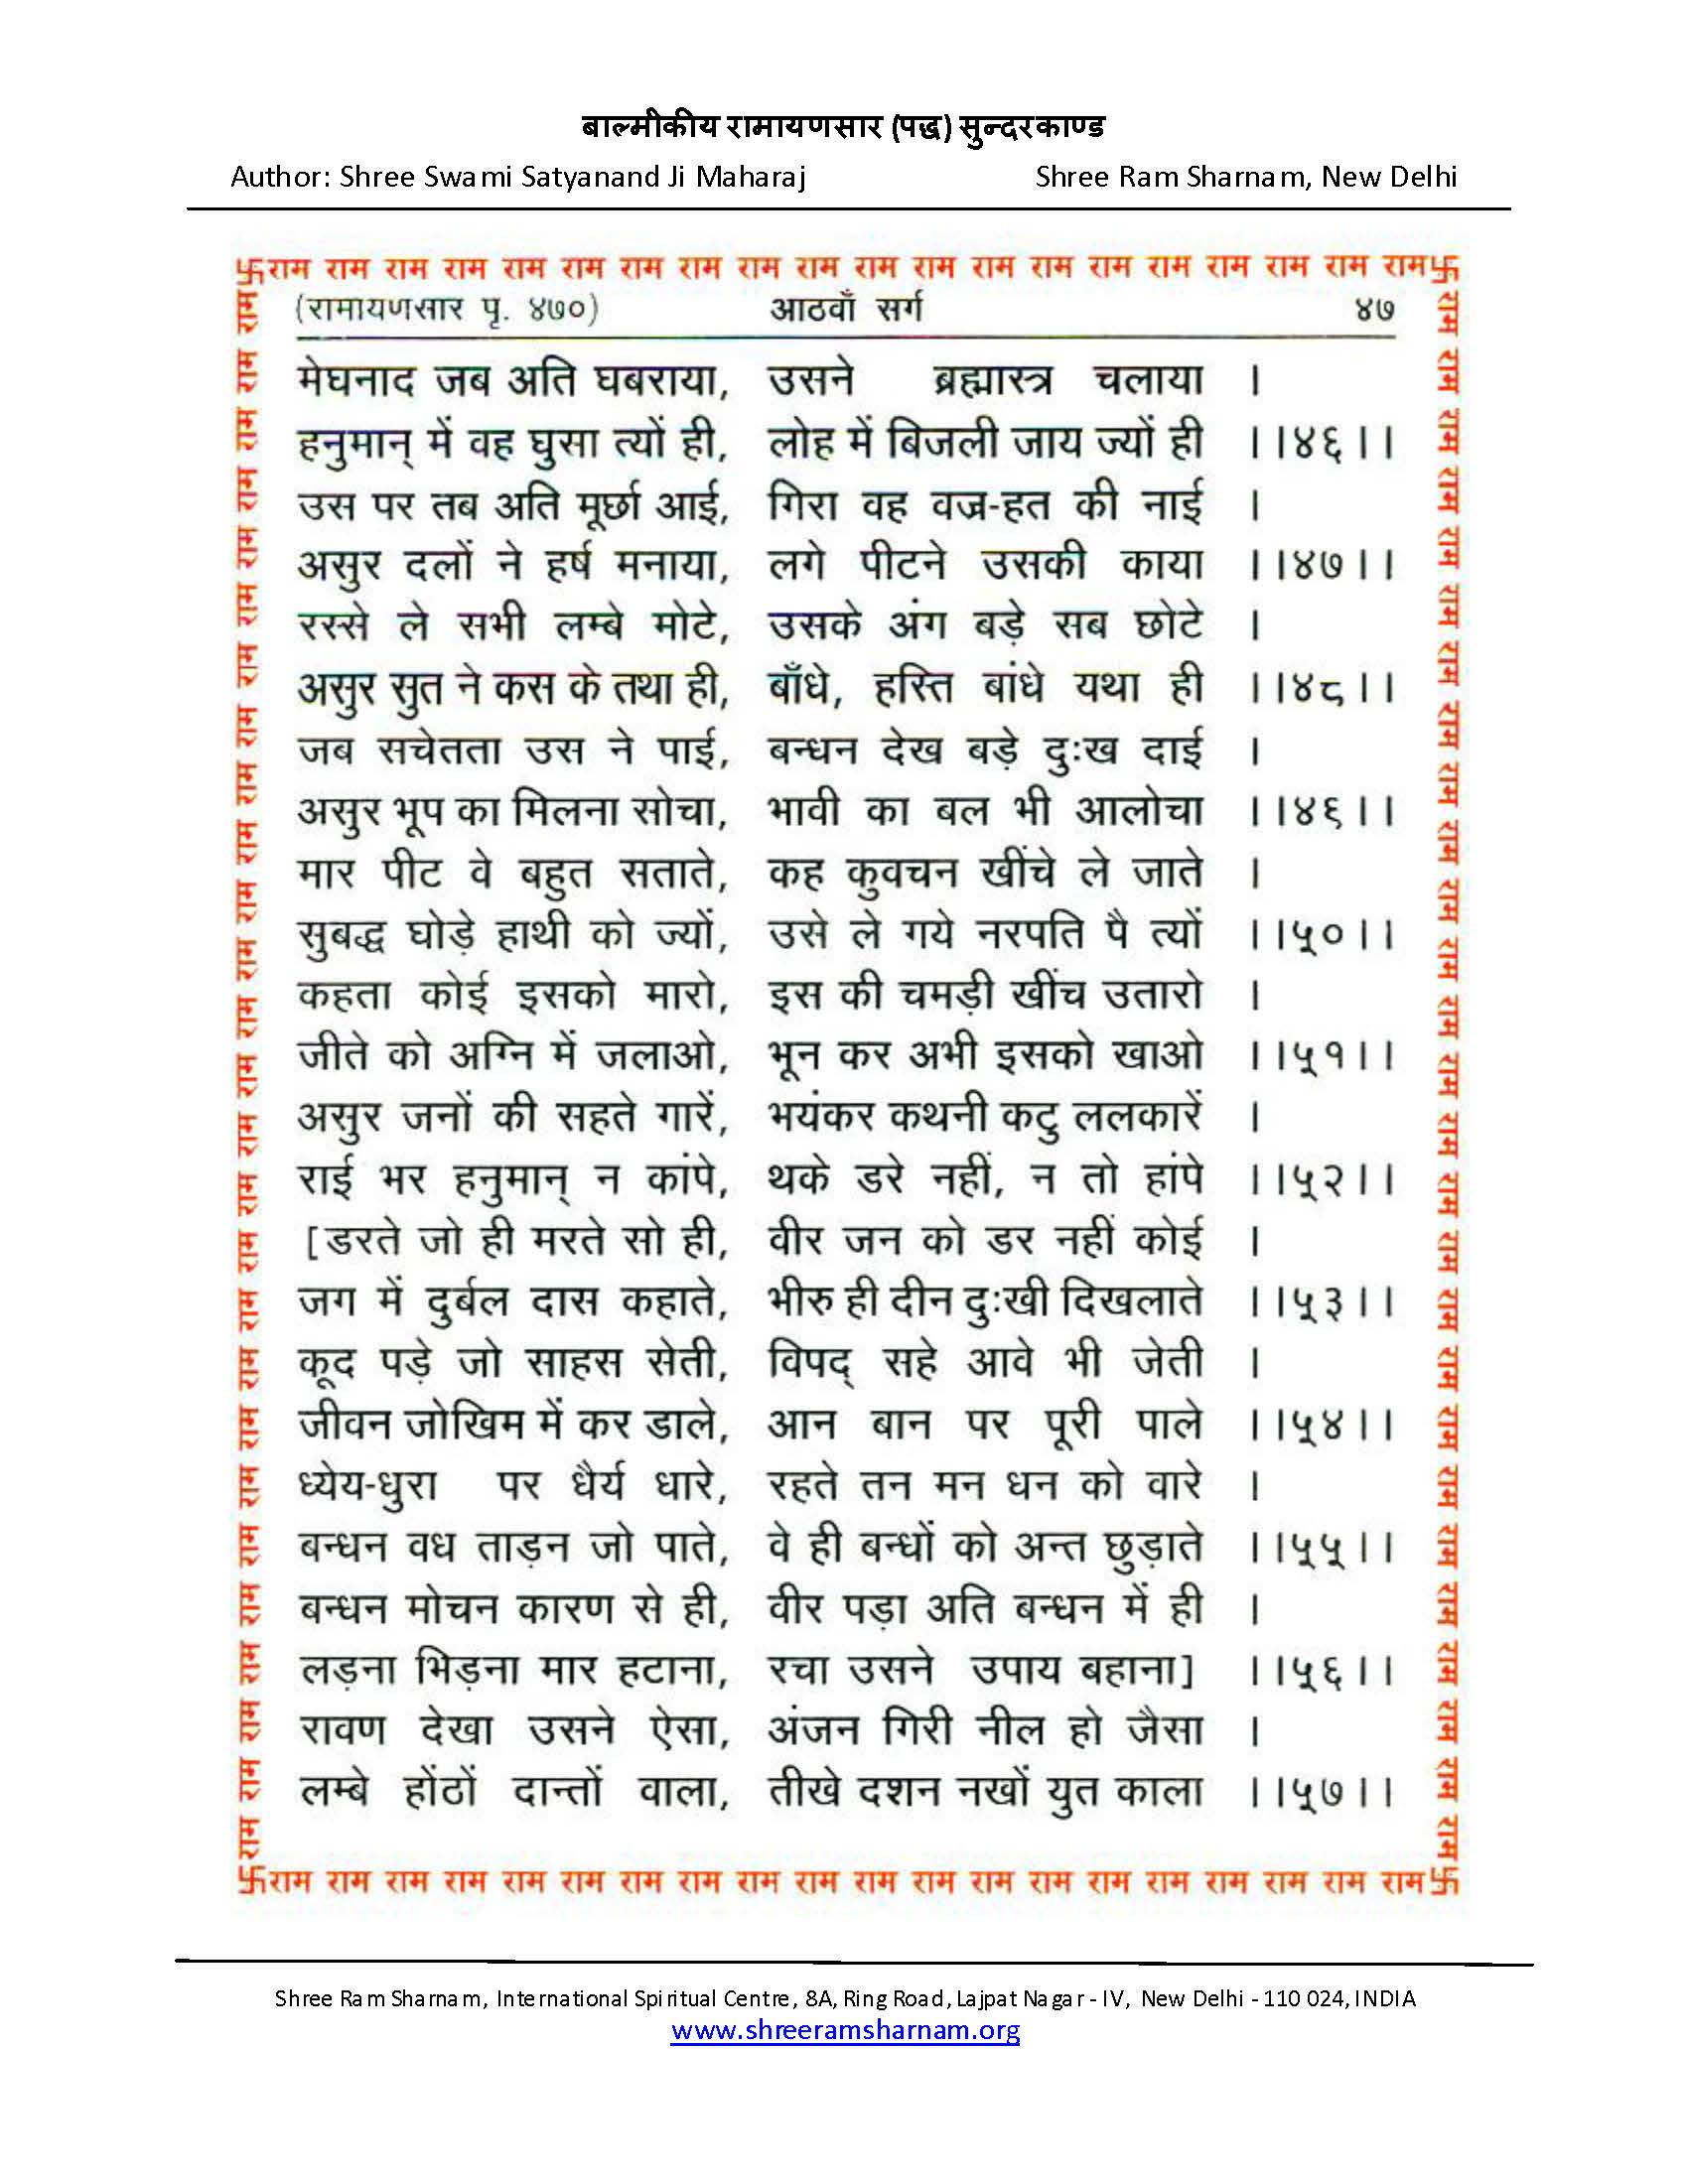 बाल्मीकीय रामायणसार (पद्य) सुन्दरकाण्ड
Author: Shree Swami Satyanand Ji Maharaj Shree Ram Sharnam, New Delhi
卐राम राम राम राम राम राम राम राम राम राम राम राम राम राम राम राम राम राम राम राम卐
(रामायणसार पृ. ४७०) आठवाँ सर्ग ४७
मेघनाद जब अति घबराया, उसने ब्रह्मास्त्र चलाया ।
हनुमान् में वह घुसा त्यों ही, लोह में बिजली जाय ज्यों ही ।।४६।।
उस पर तब अति मूर्छा आई, गिरा वह वज्र-हत की नाई ।
असुर दलों ने हर्ष मनाया, लगे पीटने उसकी काया ।।४७।।
रस्से ले सभी लम्बे मोटे, उसके अंग बड़े सब छोटे ।
असुर सुत ने कस के तथा ही, बाँधे, हस्ति बांधे यथा ही ।।४८।।
जब सचेतता उस ने पाई, बन्धन देख बड़े दुःख दाई ।
असुर भूप का मिलना सोचा, भावी का बल भी आलोचा ।।४६।।
मार पीट वे बहुत सताते, कह कुवचन खींचे ले जाते ।
सुबद्ध घोड़े हाथी को ज्यों, उसे ले गये नरपति पै त्यों ।।५०।।
कहता कोई इसको मारो, इस की चमड़ी खींच उतारो ।
जीते को अग्नि में जलाओ, भून कर अभी इसको खाओ ।।५१।।
असुर जनों की सहते गारें, भयंकर कथनी कटु ललकारें ।
राई भर हनुमान् न कांपे, थके डरे नहीं, न तो हांपे ।।५२।।
[डरते जो ही मरते सो ही, वीर जन को डर नहीं कोई ।
जग में दुर्बल दास कहाते, भीरु ही दीन दुःखी दिखलाते ।।५३।।
कूद पड़े जो साहस सेती, विपद् सहे आवे भी जेती ।
जीवन जोखिम में कर डाले, आन बान पर पूरी पाले ।।५४।।
ध्येय-धुरा पर धैर्य धारे, रहते तन मन धन को वारे ।
बन्धन वध ताड़न जो पाते, वे ही बन्धों को अन्त छुड़ाते ।।५५।।
बन्धन मोचन कारण से ही, वीर पड़ा अति बन्धन में ही ।
लड़ना भिड़ना मार हटाना, रचा उसने उपाय बहाना] ।।५६।।
रावण देखा उसने ऐसा, अंजन गिरी नील हो जैसा ।
लम्बे होंठों दान्तों वाला, तीखे दशन नखों युत काला ।।५७।।
卐राम राम राम राम राम राम राम राम राम राम राम राम राम राम राम राम राम राम राम राम卐
Shree Ram Sharnam, International Spiritual Centre, 8A, Ring Road, Lajpat Nagar - IV, New Delhi - 110 024, INDIA
www.shreeramsharnam.org